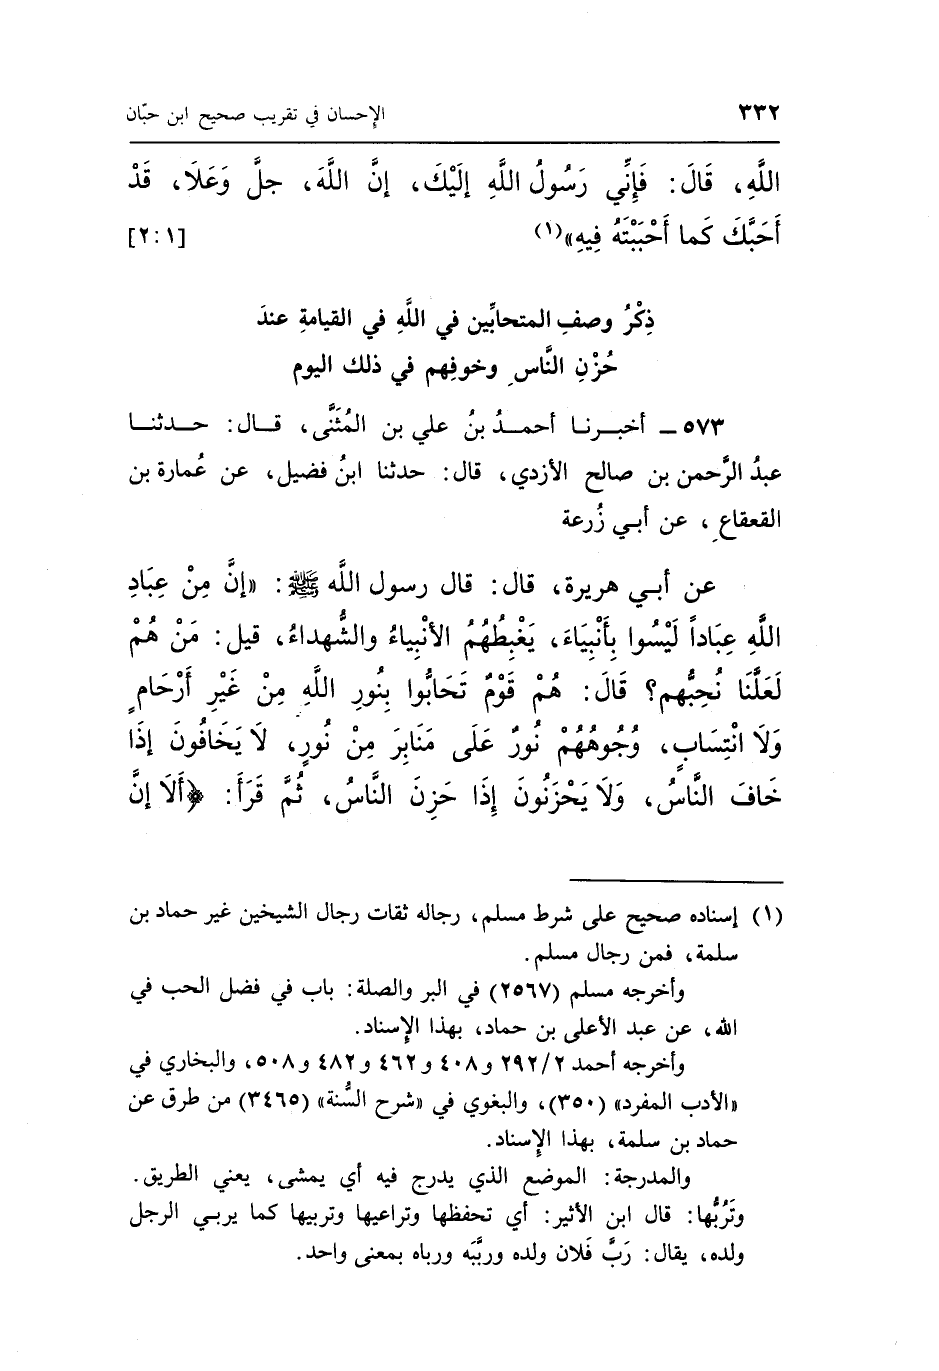 ٣٣٢ الإحسان في تقريب صحيح ابن حبّان
اللَّهِ، قَالَ: فَإِنِّي رَسُولُ اللَّهِ إِلَيْكَ، إِنَّ اللَّهَ، جلَّ وَعَلَا، قَدْ
أَحَبَّكَ كَما أَحْبَبْتَهُ فِيهِ»(١) [١ : ٢]
ذِكْرُ وصفِ المتحابِّين في اللَّهِ في القيامةِ عندَ
حُزْنِ النَّاسِ وخوفِهم في ذلك اليوم
٥٧٣ ـ أخبرنا أحمدُ بنُ علي بن المُثَنَّى، قال: حدثنا
عبدُ الرَّحمن بن صالح الأزدي، قال: حدثنا ابنُ فضيل، عن عُمارة بن
القعقاعِ، عن أبي زُرعة
عن أبي هريرة، قال: قال رسول اللَّه ﷺ: «إنَّ مِنْ عِبَادِ
اللَّهِ عِبَاداً لَيْسُوا بِأَنْبِيَاءَ، يَغْبِطُهُمُ الأنْبِياءُ والشُّهداءُ، قيل: مَنْ هُمْ
لَعَلَّنَا نُحِبُّهم؟ قَالَ: هُمْ قَوْمٌ تَحَابُّوا بِنُورِ اللَّهِ مِنْ غَيْرِ أَرْحَامٍ
وَلَا انْتِسَابٍ، وُجُوهُهُمْ نُورٌ عَلَى مَنَابِرَ مِنْ نُورٍ، لَا يَخَافُونَ إذَا
خَافَ النَّاسُ، وَلَا يَحْزَنُونَ إِذَا حَزِنَ النَّاسُ، ثُمَّ قَرَأَ: ﴿أَلَا إنَّ
(١) إسناده صحيح على شرط مسلم، رجاله ثقات رجال الشيخين غير حماد بن
سلمة، فمن رجال مسلم.
وأخرجه مسلم (٢٥٦٧) في البر والصلة: باب في فضل الحب في
الله، عن عبد الأعلى بن حماد، بهذا الإسناد.
وأخرجه أحمد ٢/٢٩٢ و٤٠٨ و٤٦٢ و٤٨٢ و٥٠٨، والبخاري في
«الأدب المفرد» (٣٥٠)، والبغوي في «شرح السُّنة» (٣٤٦٥) من طرق عن
حماد بن سلمة، بهذا الإسناد.
والمدرجة: الموضع الذي يدرج فيه أي يمشى، يعني الطريق.
وتَرُبُّها: قال ابن الأثير: أي تحفظها وتراعيها وتربيها كما يربي الرجل
ولده، يقال: رَبَّ فَلان ولده وربَّبَه ورباه بمعنى واحد.